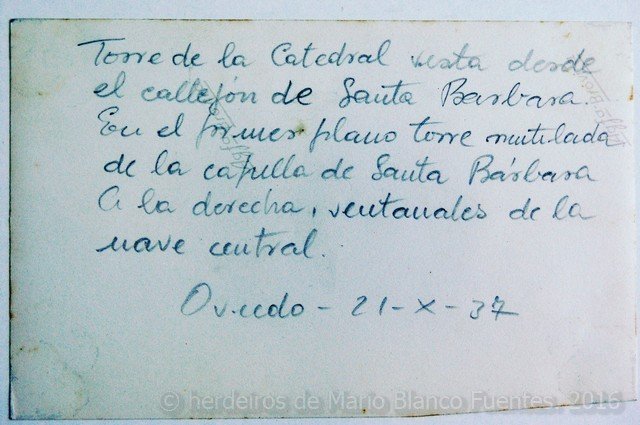 Torre de la Catedral vista desde
el callejón de Santa Barbara.
En el primer plano torre mutilada
de la capilla de Santa Bárbara
A la derecha, ventanales de la
nave central.
Oviedo - 21 - X - 37
© herdeiros de Mario Blanco Fuentes, 2016